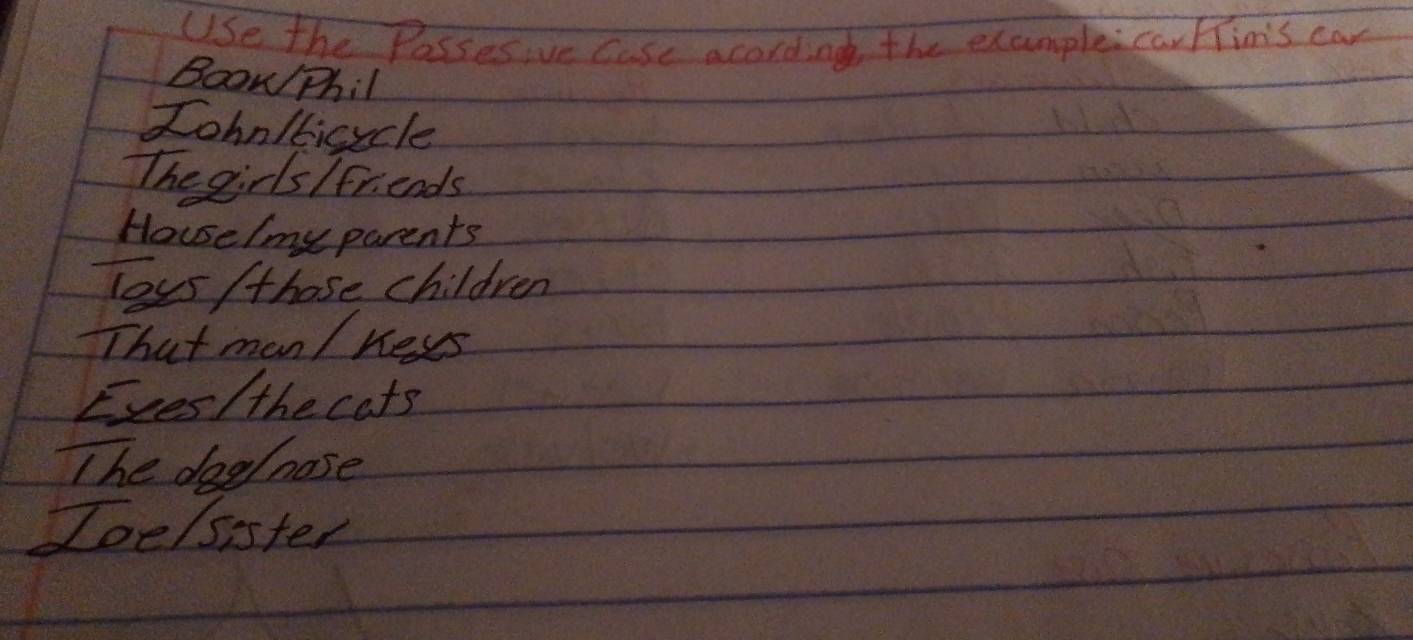 Use the Possesive Case acording the example: car/Tim's car
Book/Phil
John/bicycle
The girls/friends
House/my parents
Toys/those children
That man/keys
Eyes/the cats
The dog/nose
Joe/sister